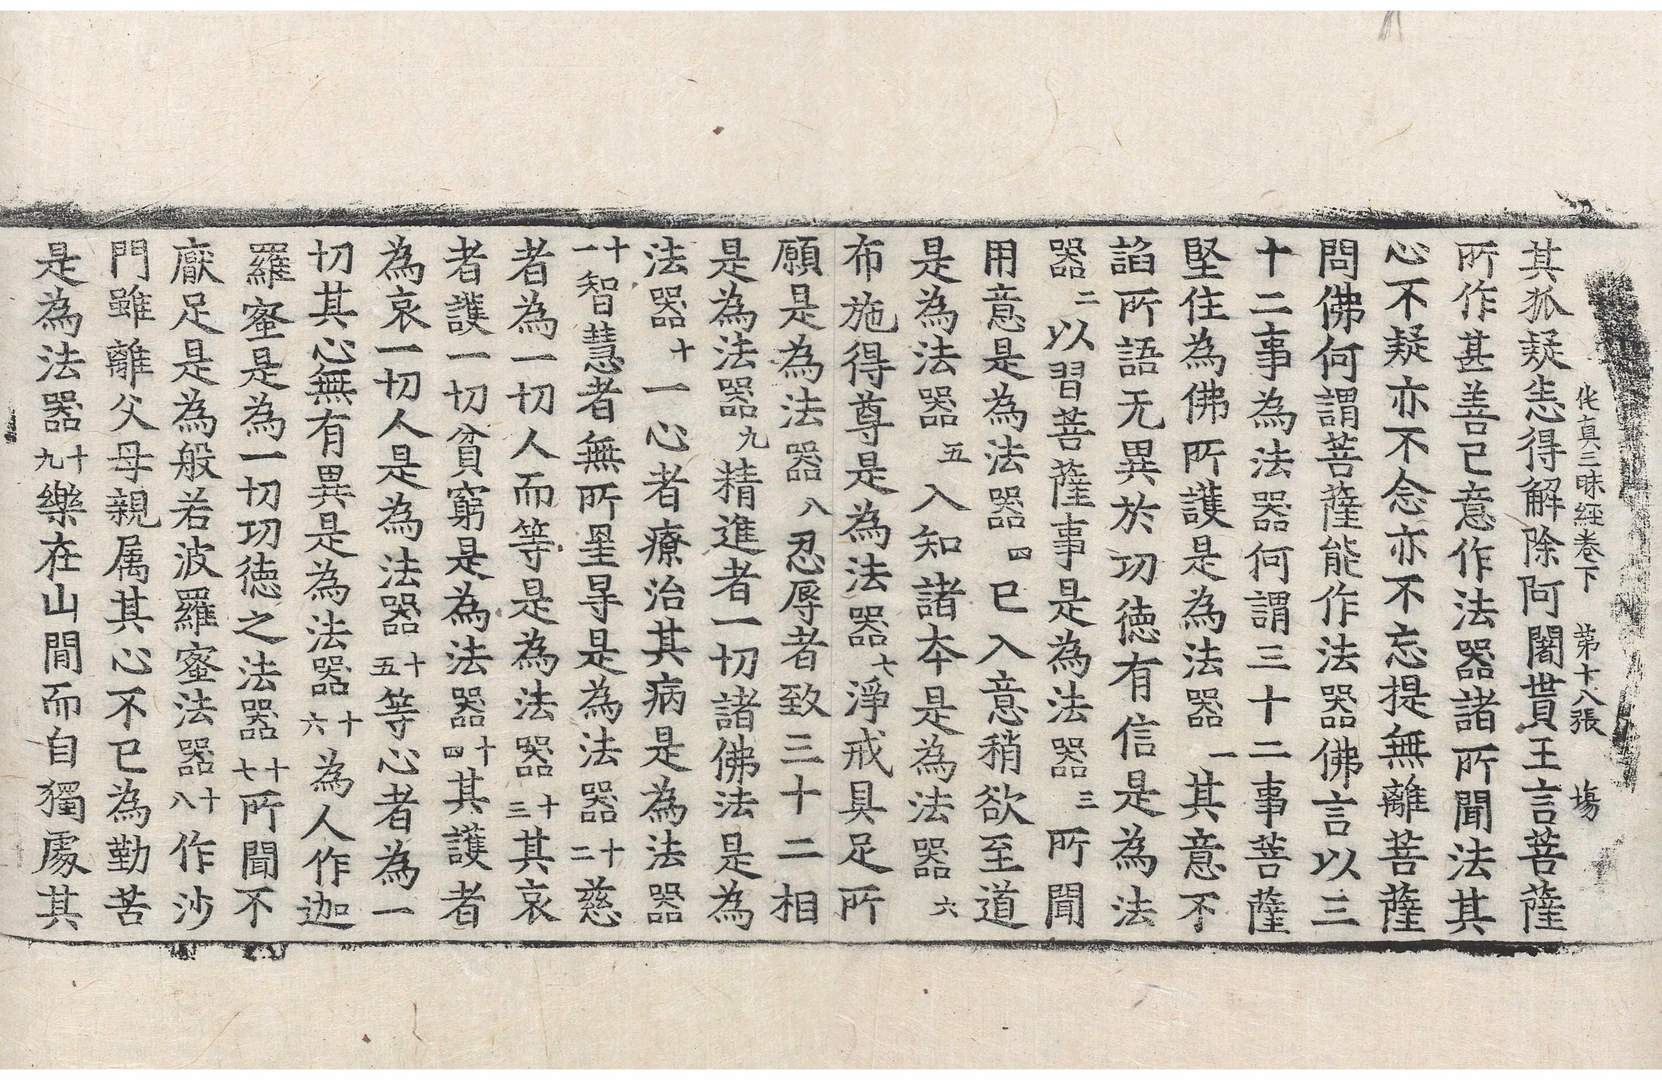 他真三昧經卷下　第十八張　塲
其狐疑恙得解除阿闍貰王言菩薩
所作甚善已意作法器諸所聞法其
心不疑亦不念亦不忘提無離菩薩
問佛何謂菩薩能作法器佛言以三
十二事為法器何謂三十二事菩薩
堅住為佛所護是為法器一其意不
諂所語无異於功徳有信是為法
器二以習菩薩事是為法器三所聞
用意是為法器四已入意稍欲至道
是為法器五入知諸夲是為法器六
布施得尊是為法器七淨戒具足所
願是為法器八忍辱者致三十二相
是為法器九精進者一切諸佛法是為
法器十一心者療治其病是為法器
十一智慧者無所罣㝵是為法器十二慈
者為一切人而等是為法器十三其哀
者護一切貧窮是為法器十四其護者
為哀一切人是為法器十五等心者為一
切其心無有異是為法器十六為人作迦
羅蜜是為一切功徳之法器十七所聞不
厭足是為般若波羅蜜法器十八作沙
門雖離父母親属其心不已為勤苦
是為法器十九樂在山閒而自獨處其